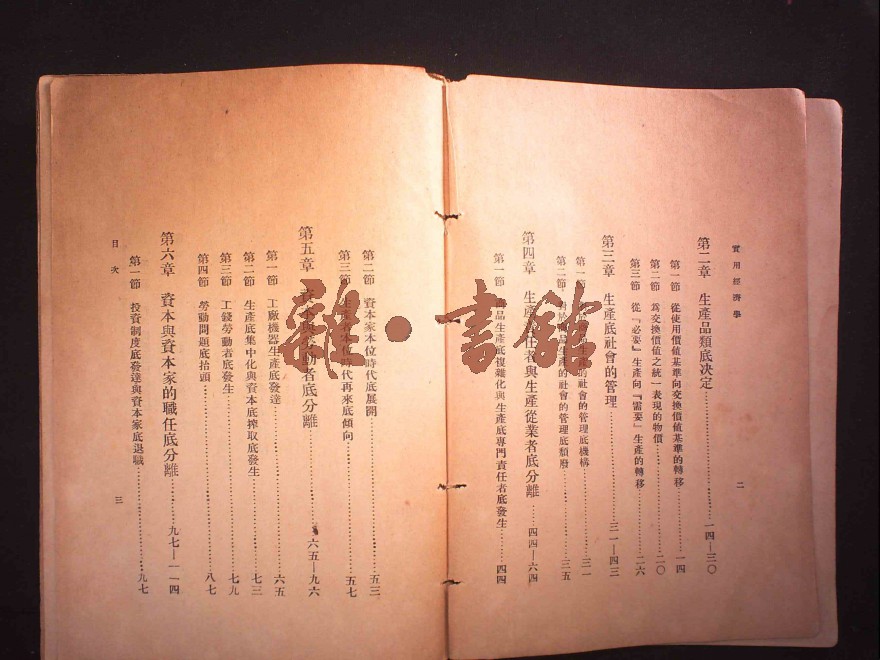 實用經濟學
二
第二章 生產品類底決定……一四—三〇
第一節 從使用價值基準向交換價值基準的轉移……一四
第二節 爲交換價值之統一表現的物價……二〇
第三節 從「必要」生產向「需要」生產的轉移……二六
第三章 生產底社會的管理……三一—四三
第一節 生產的社會的管理底機構……三一
第二節 品生產的社會的管理底頹廢……三五
第四章 生產責任者與生產從業者底分離……四四—六四
第一節 品生產底複雜化與生產底專門責任者底發生……四四
第二節 資本家本位時代底展開……五三
第三節 生產者本位時代再來底傾向……五七
第五章 資本與勞動者底分離……六五—九六
第一節 工廠機器生產底發達……六五
第二節 生產底集中化與資本底搾取底發生……七三
第三節 工錢勞動者底發生……七九
第四節 勞動問題底抬頭……八七
第六章 資本與資本家的職任底分離……九七—一一四
第一節 投資制度底發達與資本家底退職……九七
目次
三
雜·書館